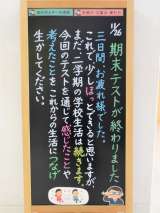 11/26
期末テストが終わりました
三日間、お疲れ様でした。
これで、少しほっとできると思いますが、
まだ、二学期の学校生活は続きます
今回のテストを通じて感じたことや
考えたことをこれからの生活につなげ
生かしてください。